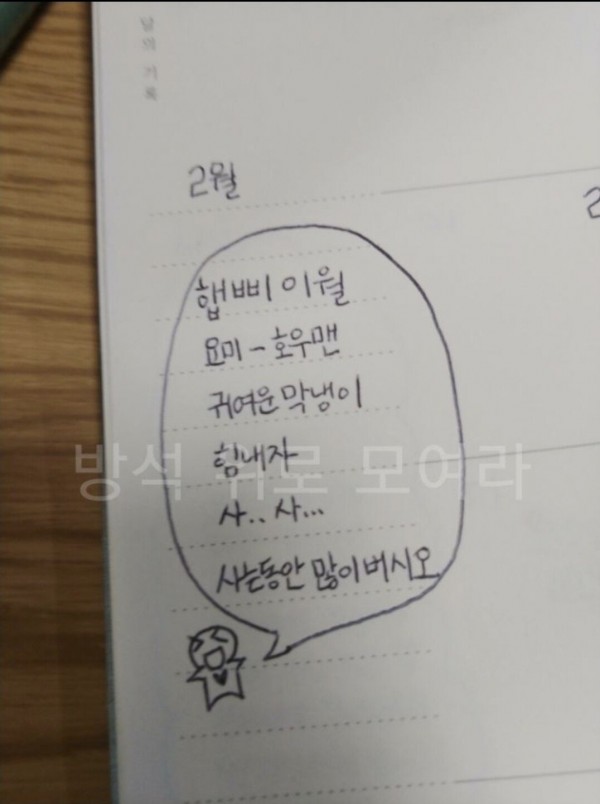 날의 기록
2월
2
햅삐 이월
요미 ~ 호우맨
귀여운 막냉이
힘내자
방석 위로 모여라
사.. 사...
사는동안 많이버시오